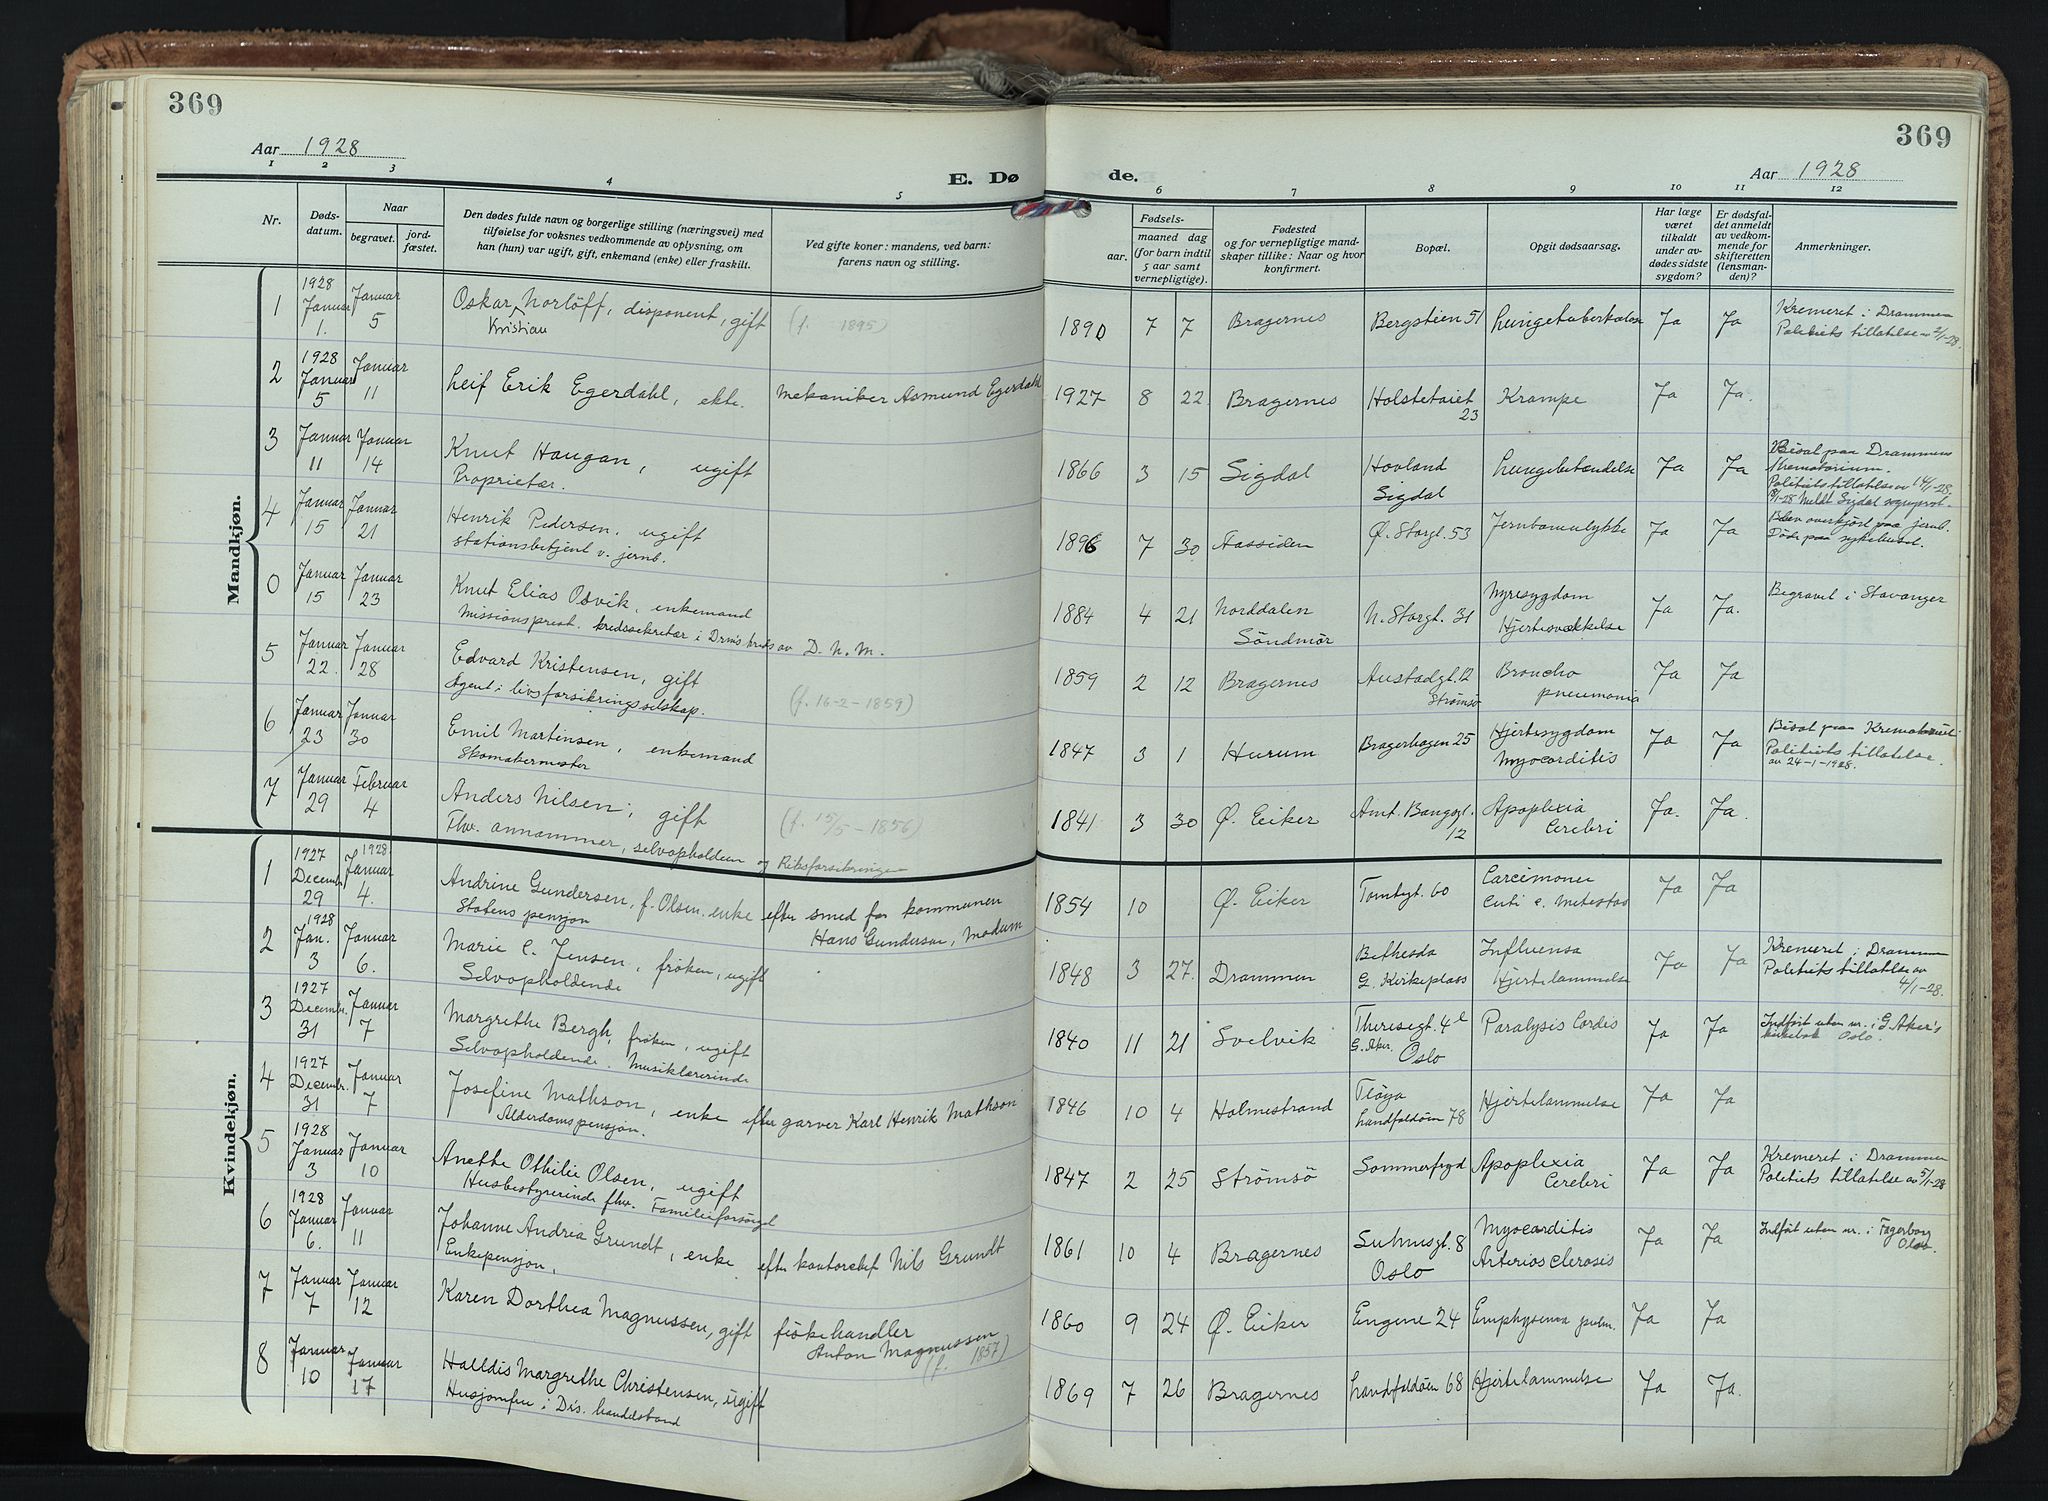 369
369
Aar 1928
E. Dø
de.
Aar 1928
1 2 3 4 5 6 7 8 9 10 11 12
Nr.
Døds-
datum.
Naar
begravet.
jord-
fæstet.
Den dødes fulde navn og borgerlige stilling (næringsvei) med
tilføielse for voksnes vedkommende av oplysning, om
han (hun) var ugift, gift, enkemand (enke) eller fraskilt.
Ved gifte koner: mandens, ved barn:
farens navn og stilling.
Fødsels-
aar. maaned dag
(for barn indtil
5 aar samt
vernepligtige).
Fødested
og for vernepligtige mand-
skaper tillike: Naar og hvor
konfirmert.
Bopæl.
Opgit dødsaarsag.
Har læge
været
tilkaldt
under av-
dødes sidste
sygdom?
Er dødsfal-
det anmeldt
av vedkom-
mende for
skifteretten
(lensman-
den)?
Anmerkninger.
Mandkjøn.
1 1928 Januar 1. Januar 5 Oskar Norlöff, disponent, gift (f. 1895) 1890 7 7 Bragernes Bergstien 51 Lungetuberkulose Ja Ja Kremeret i Drammen
Kristian Politiets tillatelse av 2/1-28.
2 1928 Januar 5 Januar 11 Leif Erik Egerdahl, ekte. Mekaniker Asmund Egerdahl 1927 8 22 Bragernes Holstetaiet 23 Krampe Ja Ja.
3 Januar 11 Januar 14 Knut Haugan, ugift 1866 3 15 Sigdal Hovland Lungebetændelse Ja Ja Bisat paa Drammens
Proprietær. Sigdal Krematorium.
Politiets tillatelse av 14/1-28.
4 Januar 15 Januar 21 Henrik Pedersen, ugift 1896 7 30 Aassiden Ø. Storgt. 53 Jernbaneulykke Ja Ja Blev overkjørt paa jernb.
Stationsbetjent v. jernb. Døde paa sykehuset.
0 Januar 15 Januar 23 Knut Elias Osvik, enkemand 1884 4 21 Norddalen N. Storgt. 31 Nyresygdom Ja Ja. Begravet i Stavanger
Missionsprest. kredssekretær i Drms kreds av D. N. M. Söndmör Hjertesvækkelse
5 Januar 22. Januar 28 Edvard Kristensen, gift 1859 2 12 Bragernes Austadgt. 12 Broncho Ja Ja
Agent i livsforsikringsselskap. (f. 16-2-1859) Strømsø pneumonia
6 Januar 23 Januar 30 Emil Martinsen, enkemand 1847 3 1 Hurum Bragerhagen 25 Hjertesygdom Ja Ja Bisat paa Krematoriet
Skomakermester Myocarditis Politiets tillatelse
av 24-1-1928.
7 Januar 29 Februar 4 Anders Nilsen, gift (f. 15/5-1856) 1841 3 30 Ø. Eiker Amt. Bangsgt. 12 Apoplexia Ja. Ja.
Fhv. annammer, selvopholdern og Cerebri
Kvindekjøn.
1 1927 Decembr 29 1928 Januar 4. Andrine Gundersen, f. Olsen. enke efter smed for kommunen 1854 10 Ø. Eiker Tomtegt. 60 Carcimoner Ja Ja
Statens pensjon Hans Gundersen, Modum Cuti c. Metastas
2 1928 Jan. 3 Januar 6. Marie C. Jensen, frøken, ugift 1848 3 27. Drammen Bethesda Influensa Ja Ja Kremeret i Drammen
Selvopholdende G. Kirkeplass Hjertelammelse Politiets tillatelse av
4/1-28.
3 1927 Decembr. 31 Januar 7 Margrethe Bergh, frøken, ugift 1840 11 21 Svelvik Theresegt. 4 Paralysis Cordis Ja Ja Indført uten nr. i G. Aker's
Selvopholdende. Musiklærerinde G. Aker. Oslo kirkebok Oslo.
4 1927 Decembr. 31 Januar 7 Josefine Mathson, enke efter garver Karl Henrik Mathson 1846 10 4 Holmestrand Fløya Hjertelammelse Ja Ja
Alderdomspensjon. Landfaldøen 78
5 1928 Januar 3 Januar 10 Anette Othilie Olsen, ugift 1847 2 25 Strømsö Sommerfryd Apoplexia Ja Ja Kremeret i Drammen
Husbestyrerinde fhv. Familieforsörget Cerebri Politiets tillatelse av 5/1-28
6 1928 Januar 6. Januar 11 Johanne Andrea Grundt, enke efter kontorchef Nils Grundt 1861 10 4 Bragernes Suhmsgt. 8 Myocarditis Ja Ja Indført uten nr. i Fagerborg
Enkepensjon. Oslo Arteriosclerosis Oslo.
7 Januar 7 Januar 12 Karen Dorthea Magnussen, gift fiskehandler 1860 9 24 Ø. Eiker Engene 24 Emphysema pulm. Ja Ja
Anton Magnussen
(f. 1857)
8 Januar 10 Januar 17 Halldis Margrethe Christensen, ugift 1869 7 26 Bragernes Landfaldøen 68 Hjertelammelse Ja Ja.
Husjomfru i Dis.